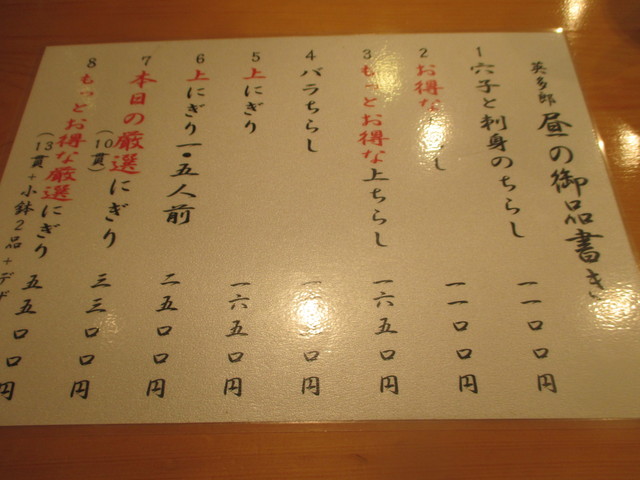 英多郎 昼の御品書き
1 穴子と刺身のちらし 一一〇〇円
2 お得な し 一一〇〇円
3 もっとお得な上ちらし 一六五〇円
4 バラちらし 〇円
5 上にぎり 一六五〇円
6 上にぎり一・五人前 二五〇〇円
7 本日の厳選にぎり 三三〇〇円
(10貫)
8 もっとお得な厳選にぎり 五五〇〇円
(13貫+小鉢2品+デザ